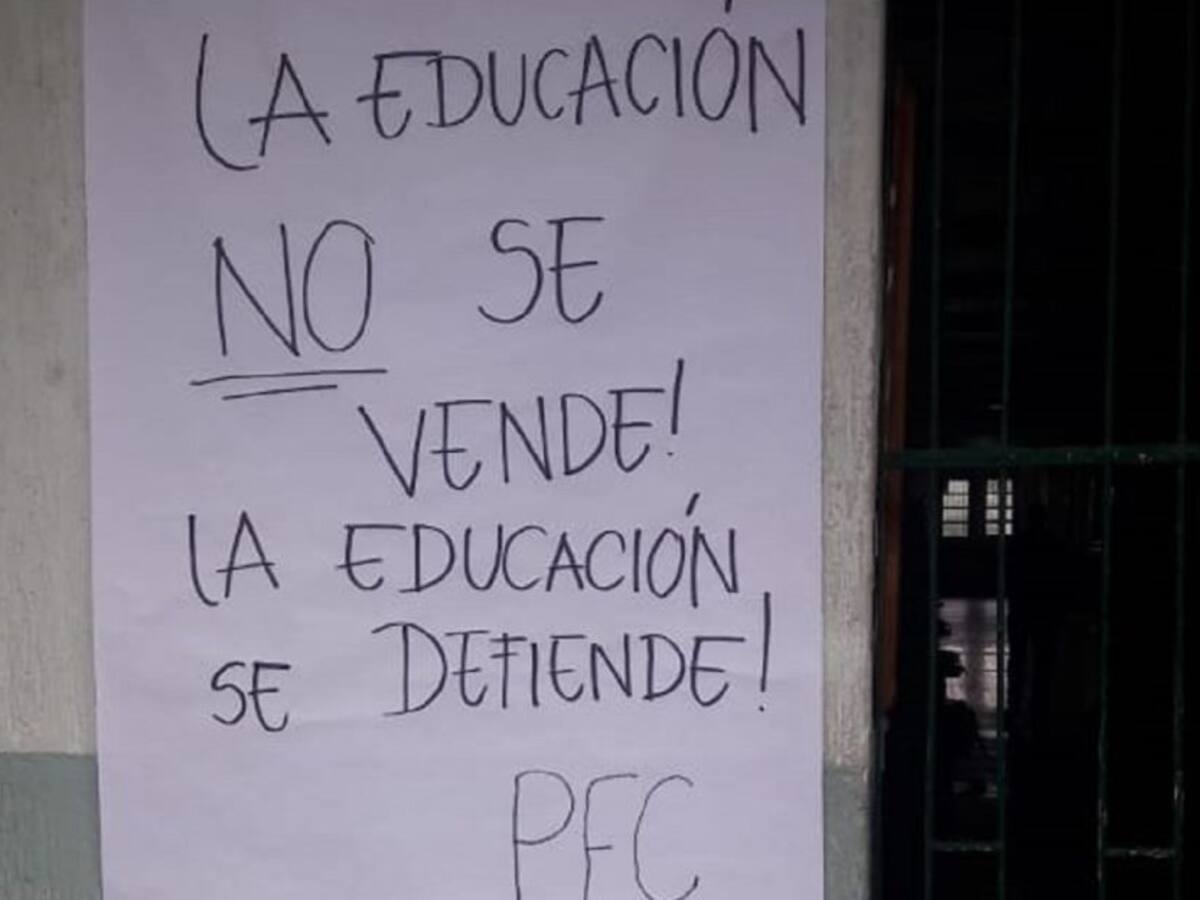 LA EDUCACIÓN
NO SE
VENDE!
LA EDUCACIÓN
SE DEFIENDE!
PFC